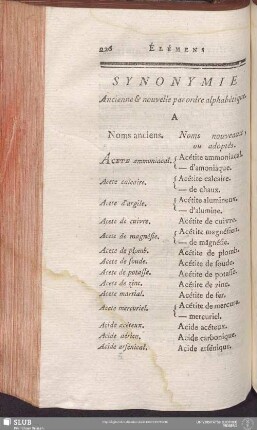 226 ÉLÉMENS
SYNONYMIE
Ancienne & nouvelle par ordre alphabétique.
A
Noms anciens. Noms nouveaux
ou adoptés.
ACETE ammoniacal. { Acétite ammoniacal.
— d'amoniaque.
Acete calcaire. { Acétite calcaire.
— de chaux.
Acete d'argile. { Acétite alumineux.
— d'alumine.
Acete de cuivre. Acétite de cuivre.
Acete de magnésie. { Acétite magnésien.
— de magnésie.
Acete de plomb. Acétite de plomb.
Acete de soude. Acétite de soude.
Acete de potasse. Acétite de potasse.
Acete de zinc. Acétite de zinc.
Acete martial. Acétite de fer.
Acete mercuriel. { Acétite de mercure.
— mercuriel.
Acide acéteux. Acide acéteux.
Acide aérien. Acide carbonique.
Acide arsénical. Acide arsénique.
SLUB